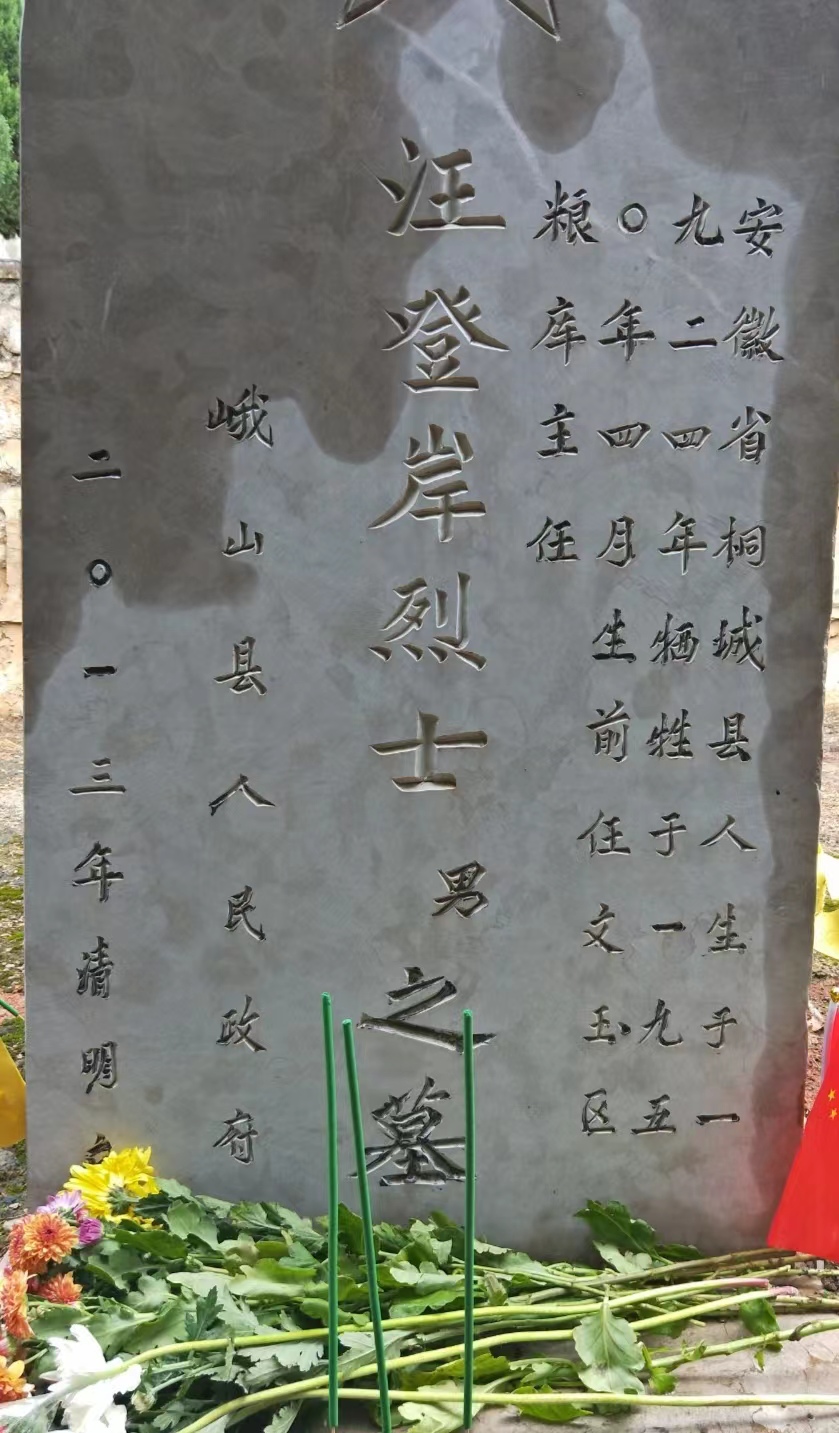 安徽省桐城县人生于一
九二四年牺牲于一九五
〇年四月生前任文玉区
粮库主任
汪登岸烈士男之墓
峨山县人民政府
二〇一三年清明